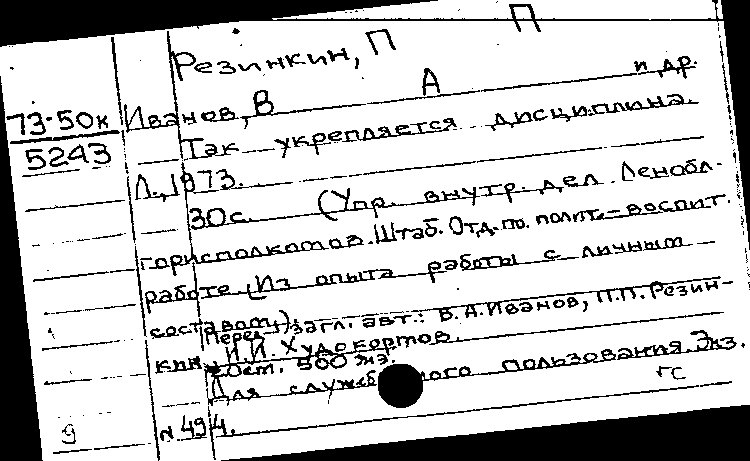 Резинкин, П П
73-50к
5243
Иванов, В А и др.
Так укрепляется дисциплина.
Л., 1973.
30с. (Упр. внутр. дел Ленобл-
горисполкомов. Штаб. Отд. по полит.-воспит.
работе. (Из опыта работы с личным
составом).
Перед загл. авт.: В.А.Иванов, П.П.Резин-
кин, И.И Худокормов.
Бест. 500 экз.
Для служебного пользования. Экз.
N 494.
гс
9